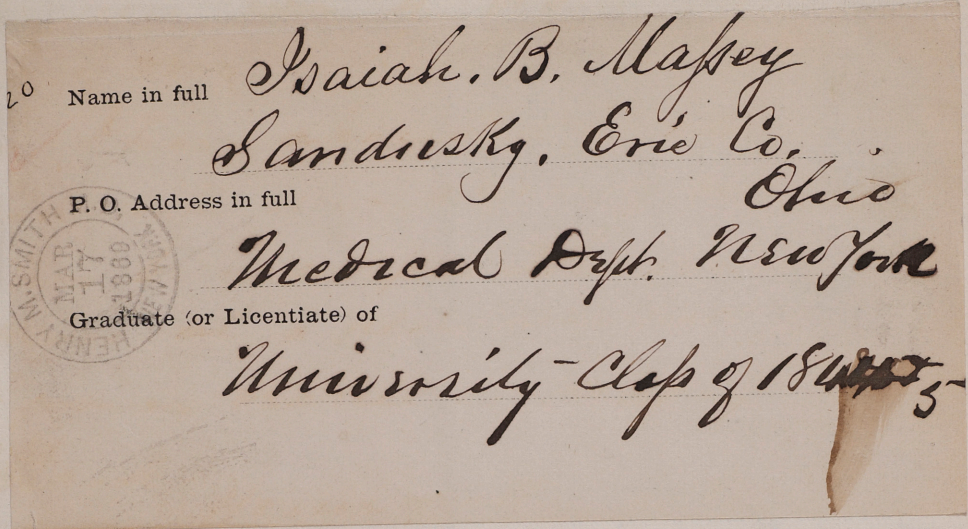 20
Name in full Isaiah. B. Massey
Sandusky, Erie Co.
P. O. Address in full Ohio
Medical Dept. New York
Graduate (or Licentiate) of
University - Class of 18
5
HENRY M. SMITH NEW YORK
MAR
17
1880